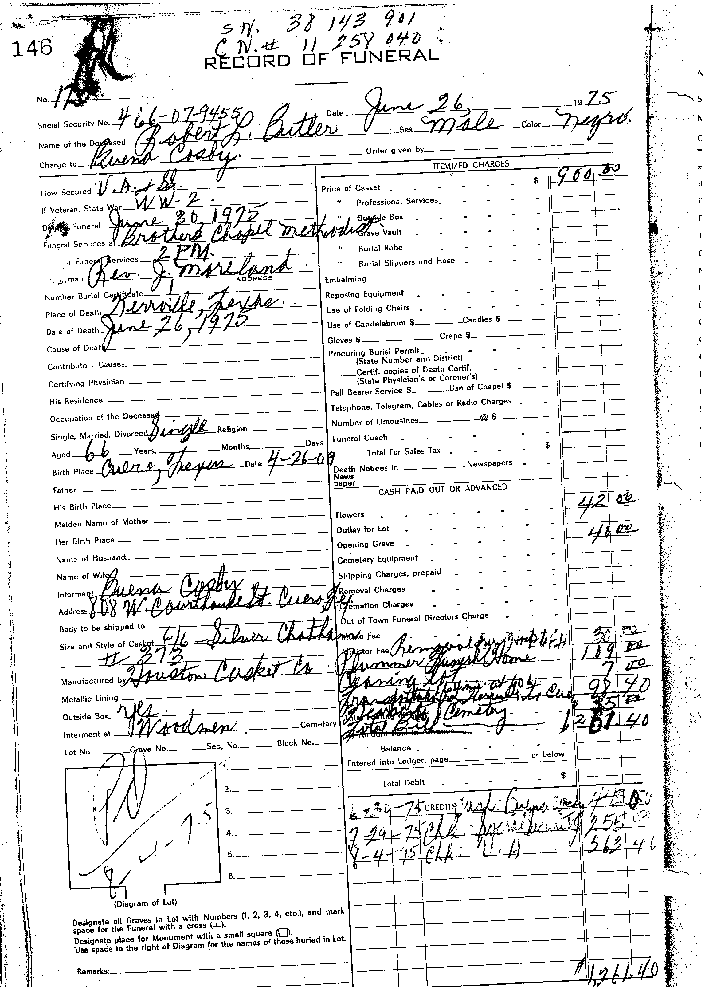 S.N. 38 143 901
146
C.N.# 11 258 040
RECORD OF FUNERAL
No.
Social Security No. 466-07-9455 Date June 26, 1975
Name of the Deceased Robert L. Butler Sex Male Color Negro
Charge to Buena Cosby Order given by
ITEMIZED CHARGES
How Secured V.A. &
If Veteran, State War W W - 2
Price of Casket $ 900 00
" Professional Services
Funeral June 30 1975
" Outside Box
Funeral Services at Brothers Chapel Methodist
" Grave Vault
Funeral Services 2 PM.
" Burial Robe
Rev. J. Moreland ADDRESS
" Burial Slippers and Hose
Number Burial Certificate 1
Embalming
Place of Death Kerrville, Texas
Reposing Equipment
Date of Death June 26, 1975
Use of Folding Chairs
Use of Candelabrum $ Candles $
Cause of Death
Gloves $ Crepe $
Contributory Causes
Procuring Burial Permit
(State Number and District)
Certifying Physician
Certif. copies of Death Certif.
(State Physician's or Coroner's)
His Residence
Pall Bearer Service $ Use of Chapel $
Occupation of the Deceased
Telephone, Telegram, Cables or Radio Charges
Single, Married, Divorced Single Religion
Number of Limousines @ $
Aged 66 Years Months Days
Funeral Coach
Total For Sales Tax $
Birth Place Cuero, Texas Date 4-26-09
Death Notices in Newspapers
News
paper
Father
CASH PAID OUT OR ADVANCED
His Birth Place
Flowers 42 00
Maiden Name of Mother
Outlay for Lot
Her Birth Place
Opening Grave
Name of Husband
Cemetery Equipment
Name of Wife
Shipping Charges, prepaid
Informant Buena Cosby
Removal Charges
Address 808 W. Courthouse St. Cuero, Tex
Cremation Charges
Body to be shipped to
Out of Town Funeral Directors Charge
Size and Style of Casket 6/6 Silver Chatham
# 273
Plummer Funeral Home
Manufactured by Houston Casket Co
Cleaning Lot 7 00
Metallic Lining
97 40
Outside Box yes
35 00
Interment at Woodmen Cemetery
1261.40
Lot No. Grave No. Sec. No. Block No.
Balance
Entered into Ledger, page or below
Total Debit $
1.
2.
3.
4.
5.
6.
Pd
8-4-75
CREDITS
7-29-75 Chk 255
8-4-75 Chk V.A 363 40
(Diagram of Lot)
Designate all Graves in Lot with Numbers (1, 2, 3, 4, etc.), and mark
space for the Funeral with a cross (⊥).
Designate place for Monument with a small square (□).
Use space to the right of Diagram for the names of those buried in Lot.
Remarks:
$1,261.40